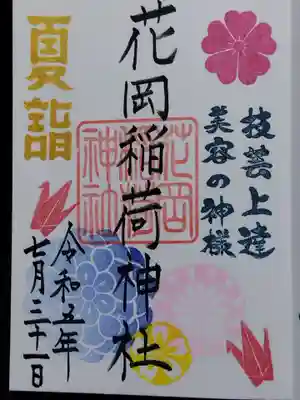 技芸上達
美容の神様
花岡稲荷神社
花岡
稲荷
神社
夏詣
令和五年
七月三十一日